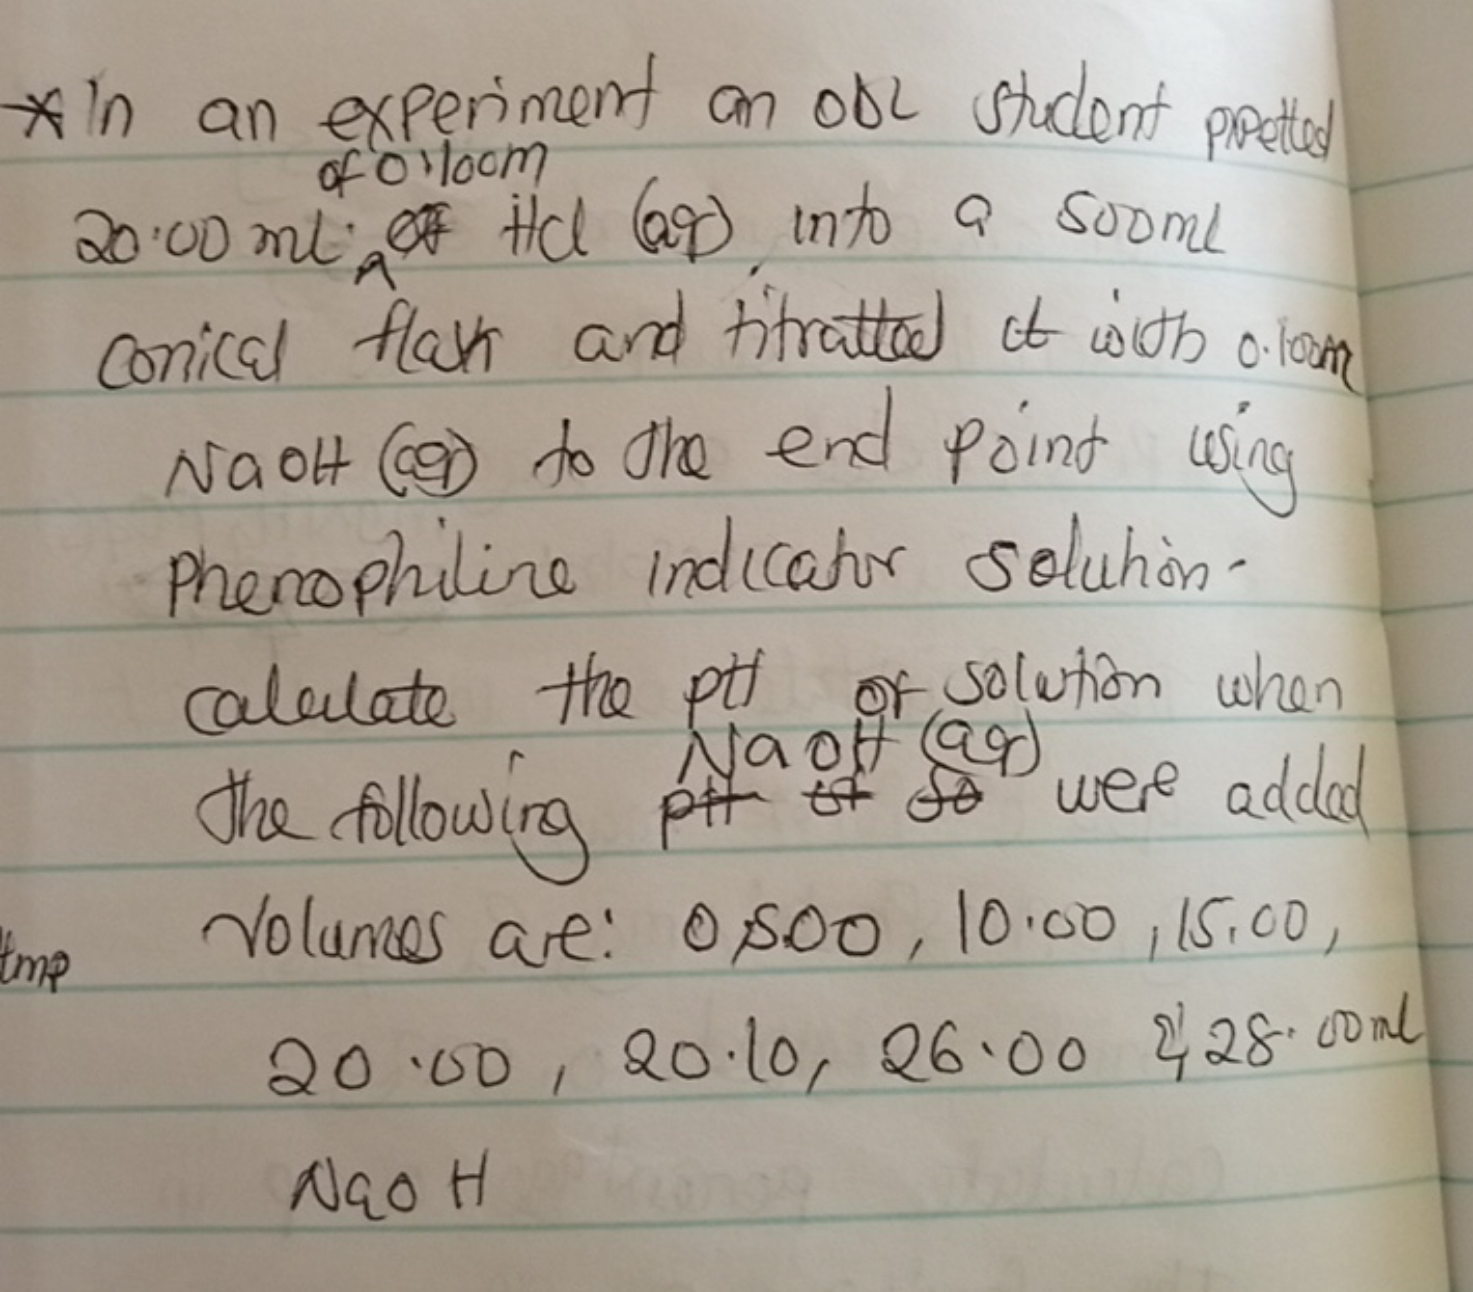 * In an experiment an ODL student pipetted
of 0.100m
20.00 ml HCl (aq) into a 500ml
conical flask and titratted it with 0.100m
NaOH (aq) to the end point using
phenophiline indicator solution.
calculate the pH of solution when
NaOH (aq)
the following pH of so were added
tmp
Volumes are: 0,500, 10.00, 15.00,
20.00, 20.10, 26.00 & 28.00ml
NaOH